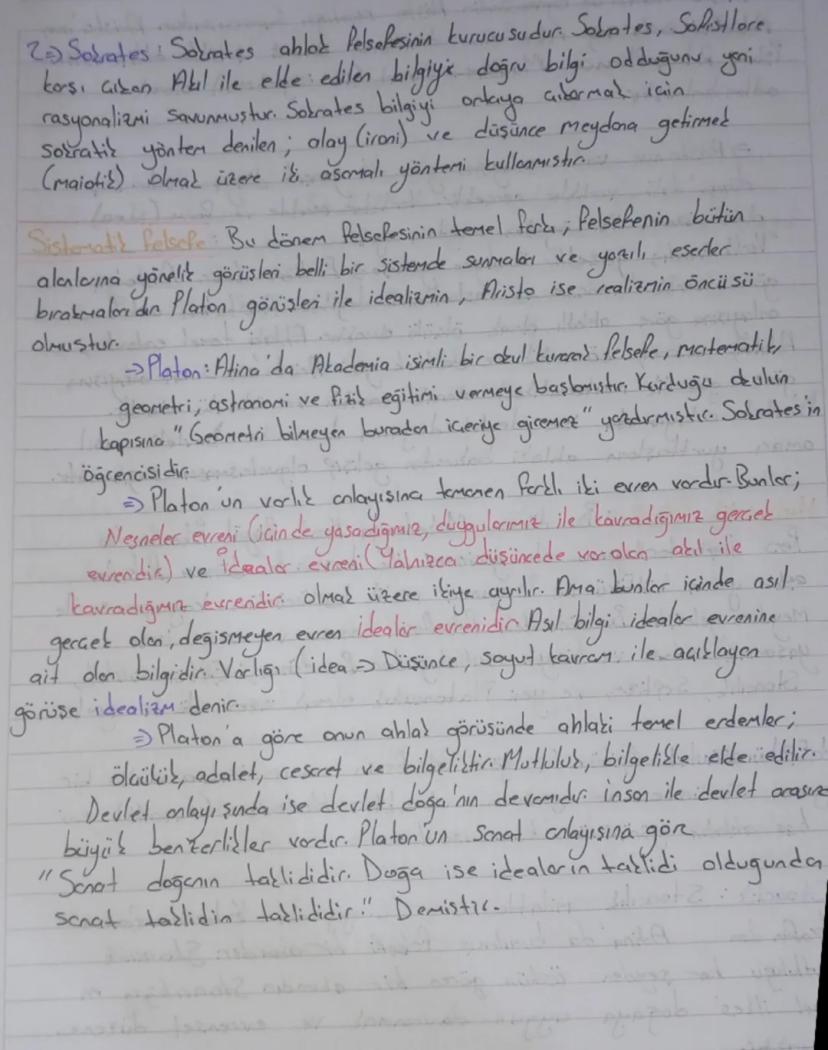 2=> Sokrates: Sokrates ahlak felsefesinin kurucusudur. Sokrates, Sofistlere
karşı çıkan Akıl ile elde edilen bilgiyi doğru bilgi odduğunu yani
rasyonalizmi savunmuştur. Sokrates bilgiyi ortaya çıkarmak için
sokratik yöntem denilen; alay (ironi) ve düşünce meydana getirmek
(maiotik) olmak üzere iki aşamalı yöntemi kullanmıştır.
Sistematik felsefe: Bu dönem felsefesinin temel farkı; felsefenin bütün
alanlarına yönelik görüşleri belli bir sistemde sunmaları ve yazılı eserler
bırakmalarıdır. Platon görüşleri ile idealizmin, Aristo ise realizmin öncüsü
olmuştur.
→Platon: Atina'da Akademia isimli bir okul kurarak felsefe, matematik,
geometri, astronomi ve fizik eğitimi vermeye başlamıştır. Kurduğu okulun
kapısına "Geometri bilmeyen buradan içeriye giremez" yazdırmıştır. Sokrates'in
öğrencisidir.
=> Platon'un varlık anlayışına tamamen farklı iki evren vardır. Bunlar;
Nesneler evreni (içinde yaşadığımız, duygularımız ile kavradığımız gerçek
evrendir) ve İdealar evreni (Yalnızca düşüncede var olan akıl ile
kavradığımız evrendir. olmak üzere ikiye ayrılır. Ama bunlar içinde asıl
gerçek olan, değişmeyen evren idealar evrenidir. Asıl bilgi idealar evrenine
ait olan bilgidir. Varlığı (idea => Düşünce, soyut kavram ile açıklayan
görüşe idealizm denir.
=> Platon'a göre onun ahlak görüşünde ahlaki temel erdemler;
ölçülük, adalet, cesaret ve bilgeliktir. Mutluluk, bilgelikle elde edilir.
Devlet anlayışında ise devlet doğa'nın devamıdır. insan ile devlet arasın
büyük benzerlikler vardır. Platon'un Sanat anlayışına göre
"Sanat doğanın taklididir. Doğa ise ideaların taklidi olduğunda
sanat taklidin taklididir." Demiştir.